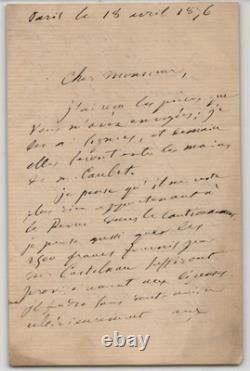 Paris le 18 avril 1876
Cher Monsieur,
j'ai reçu les pièces que
vous m'avez envoyées; je
les ai signées, et demain
elles seront entre les mains
de M. Caubet.
je pense qu'il ne reste
plus rien appartenant à
la Revue sous le cautionnement
je pense aussi que les
2500 francs fournis par
M. Castelnau suffiront
aux
ultérieurement aux
© ebay